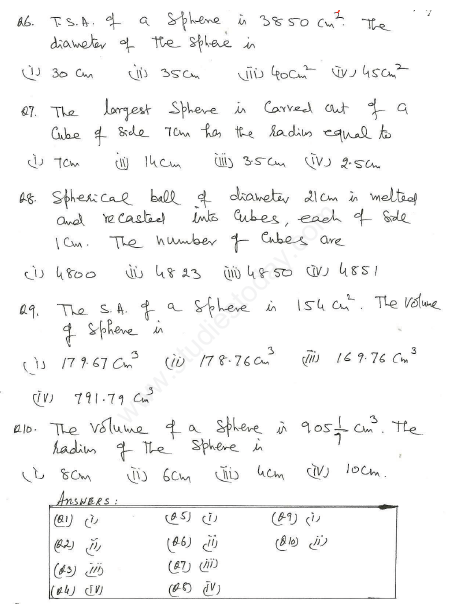 Q6. T.S.A. of a Sphere is 3850 cm². The
diameter of the sphere is
(i) 30 cm (ii) 35cm (iii) 40cm² (iv) 45cm²
Q7. The largest Sphere is carved out of a
Cube of side 7cm has the radius equal to
(i) 7cm (ii) 14cm (iii) 3.5cm (iv) 2.5cm
Q8. Spherical ball of diameter 21cm is melted
and recasted into cubes, each of side
1cm. The number of cubes are
(i) 4800 (ii) 4823 (iii) 4850 (iv) 4851
Q9. The S.A. of a Sphere is 154 cm². The volume
of sphere is
(i) 179.67 cm³ (ii) 178.76 cm³ (iii) 169.76 cm³
(iv) 791.79 cm³
Q10. The volume of a sphere is 905 1/7 cm³. The
radius of the sphere is
(i) 8cm (ii) 6cm (iii) 4cm (iv) 10cm.
ANSWERS:
(Q1) (i) (Q5) (i) (Q9) (i)
(Q2) (ii) (Q6) (ii) (Q10) (ii)
(Q3) (iii) (Q7) (iii)
(Q4) (iv) (Q8) (iv)
www.studiestoday.com